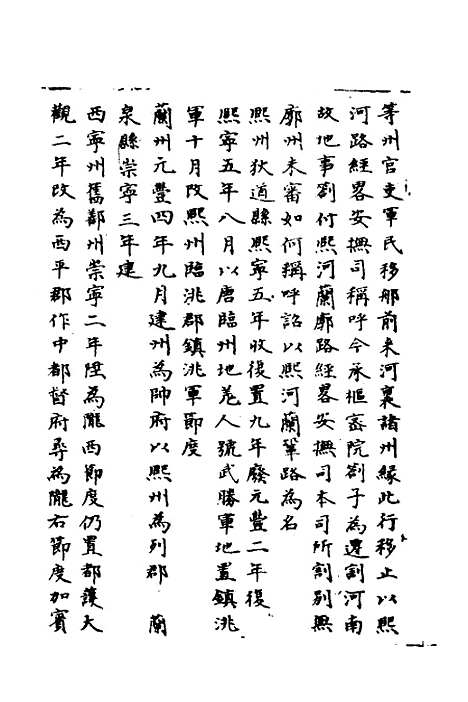 等州官吏軍民移那前来河裏諸州緣此行移止以熙
河路經畧安撫司稱呼今承樞宻院劄子為邊割河南
故地事劉付熙河蘭廓路經畧安撫司本司所割别無
廓州未審如何稱呼詔以熙河蘭鞏路為名
熙州狄道縣熙寧五年收復置九年廢元豐二年復
熙寧五年八月以唐臨州地羌人號武勝軍地置鎮洮
軍十月改熙州臨洮郡鎮洮軍節度
蘭州元豐四年九月建州為帥府以熙州為列郡　蘭
泉縣崇寧三年建
西寧州舊鄯州崇寧二年陞為隴西節度仍置都護大
觀二年改為西平郡作中都督府尋為隴右節度加賓